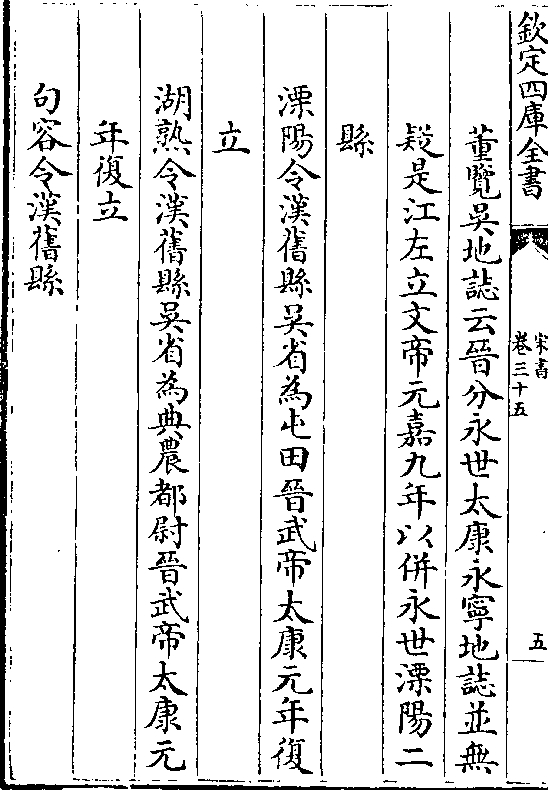 欽定四庫全書
宋書
卷三十五
五
董覽吳地誌云晉分永世太康永寧地誌並無
疑是江左立文帝元嘉九年以併永世溧陽二
縣
溧陽令漢舊縣吳省為屯田晉武帝太康元年復
立
湖熟令漢舊縣吳省為典農都尉晉武帝太康元
年復立
句容令漢舊縣